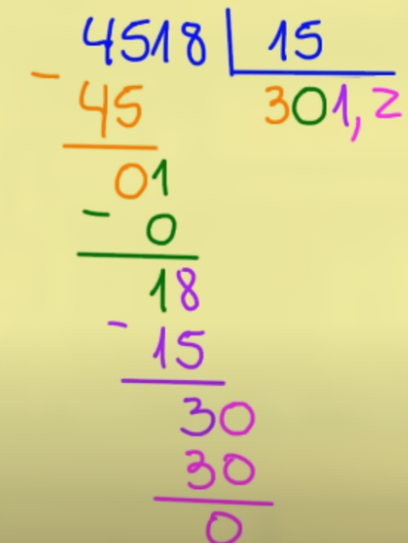 4518 15
- 45 301,2
01
- 0
18
- 15
30
30
0